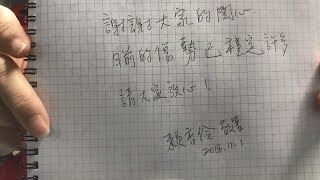 謝謝大家的關心.
目前的傷勢已穩定許多
請大家放心!
賴 敬筆
2018.11.1